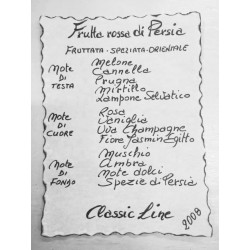 Frutta rossa di Persia
FRUTTATA - SPEZIATA - ORIENTALE
NOTE DI TESTA
Melone
Cannella
Prugna
Mirtillo
Lampone Selvatico
NOTE DI CUORE
Rosa
Vaniglia
Uva Champagne
Fiore Jasmin Egitto
NOTE DI FONDO
Muschio
Ambra
Note dolci
Spezie di Persia
Classic Line
2008